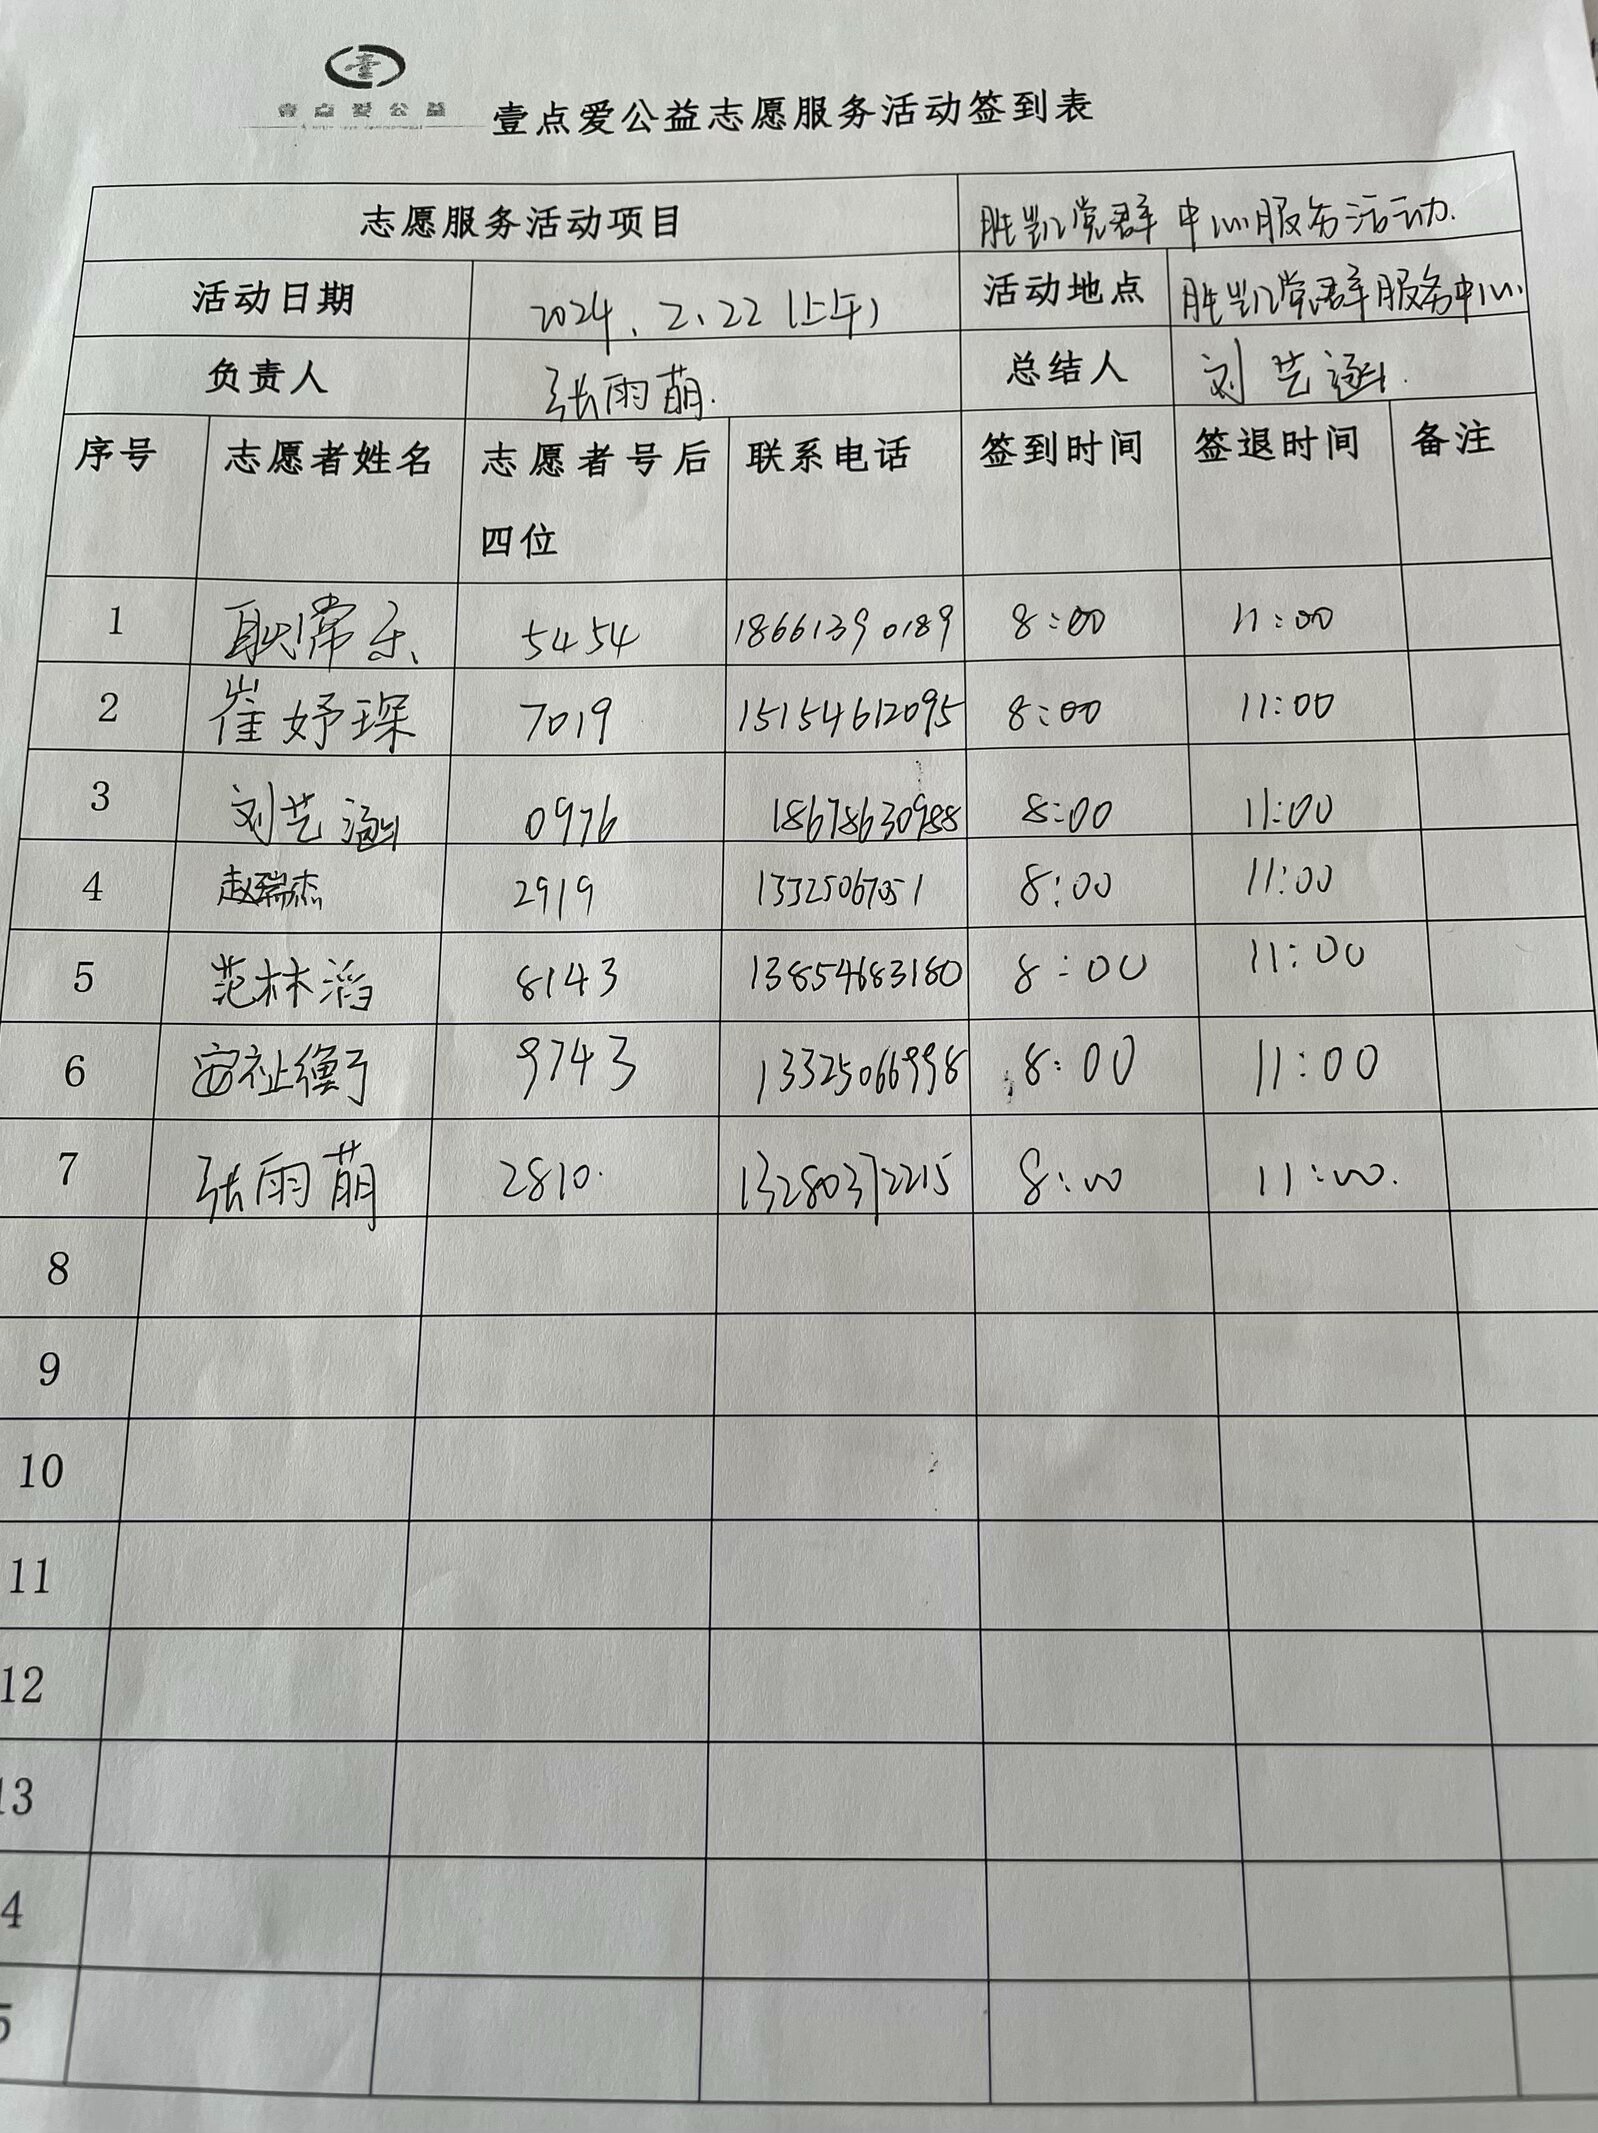 壹点爱公益
壹点爱公益志愿服务活动签到表
志愿服务活动项目 胜凯党群中心服务活动.
活动日期 2024、2、22(上午) 活动地点 胜凯党群服务中心
负责人 张雨萌. 总结人 刘艺涵.
序号 志愿者姓名 志愿者号后四位 联系电话 签到时间 签退时间 备注
1 耿常乐 5454 18661390189 8:00 11:00
2 崔妤琛 7019 15154612095 8:00 11:00
3 刘艺涵 0976 18678630988 8:00 11:00
4 赵瑞杰 2919 13325067051 8:00 11:00
5 范林滔 8143 13854683180 8:00 11:00
6 安祉衡 9743 13325066998 8:00 11:00
7 张雨萌 2810. 13280372215 8:00 11:00.
8
9
10
11
12
13
4
5